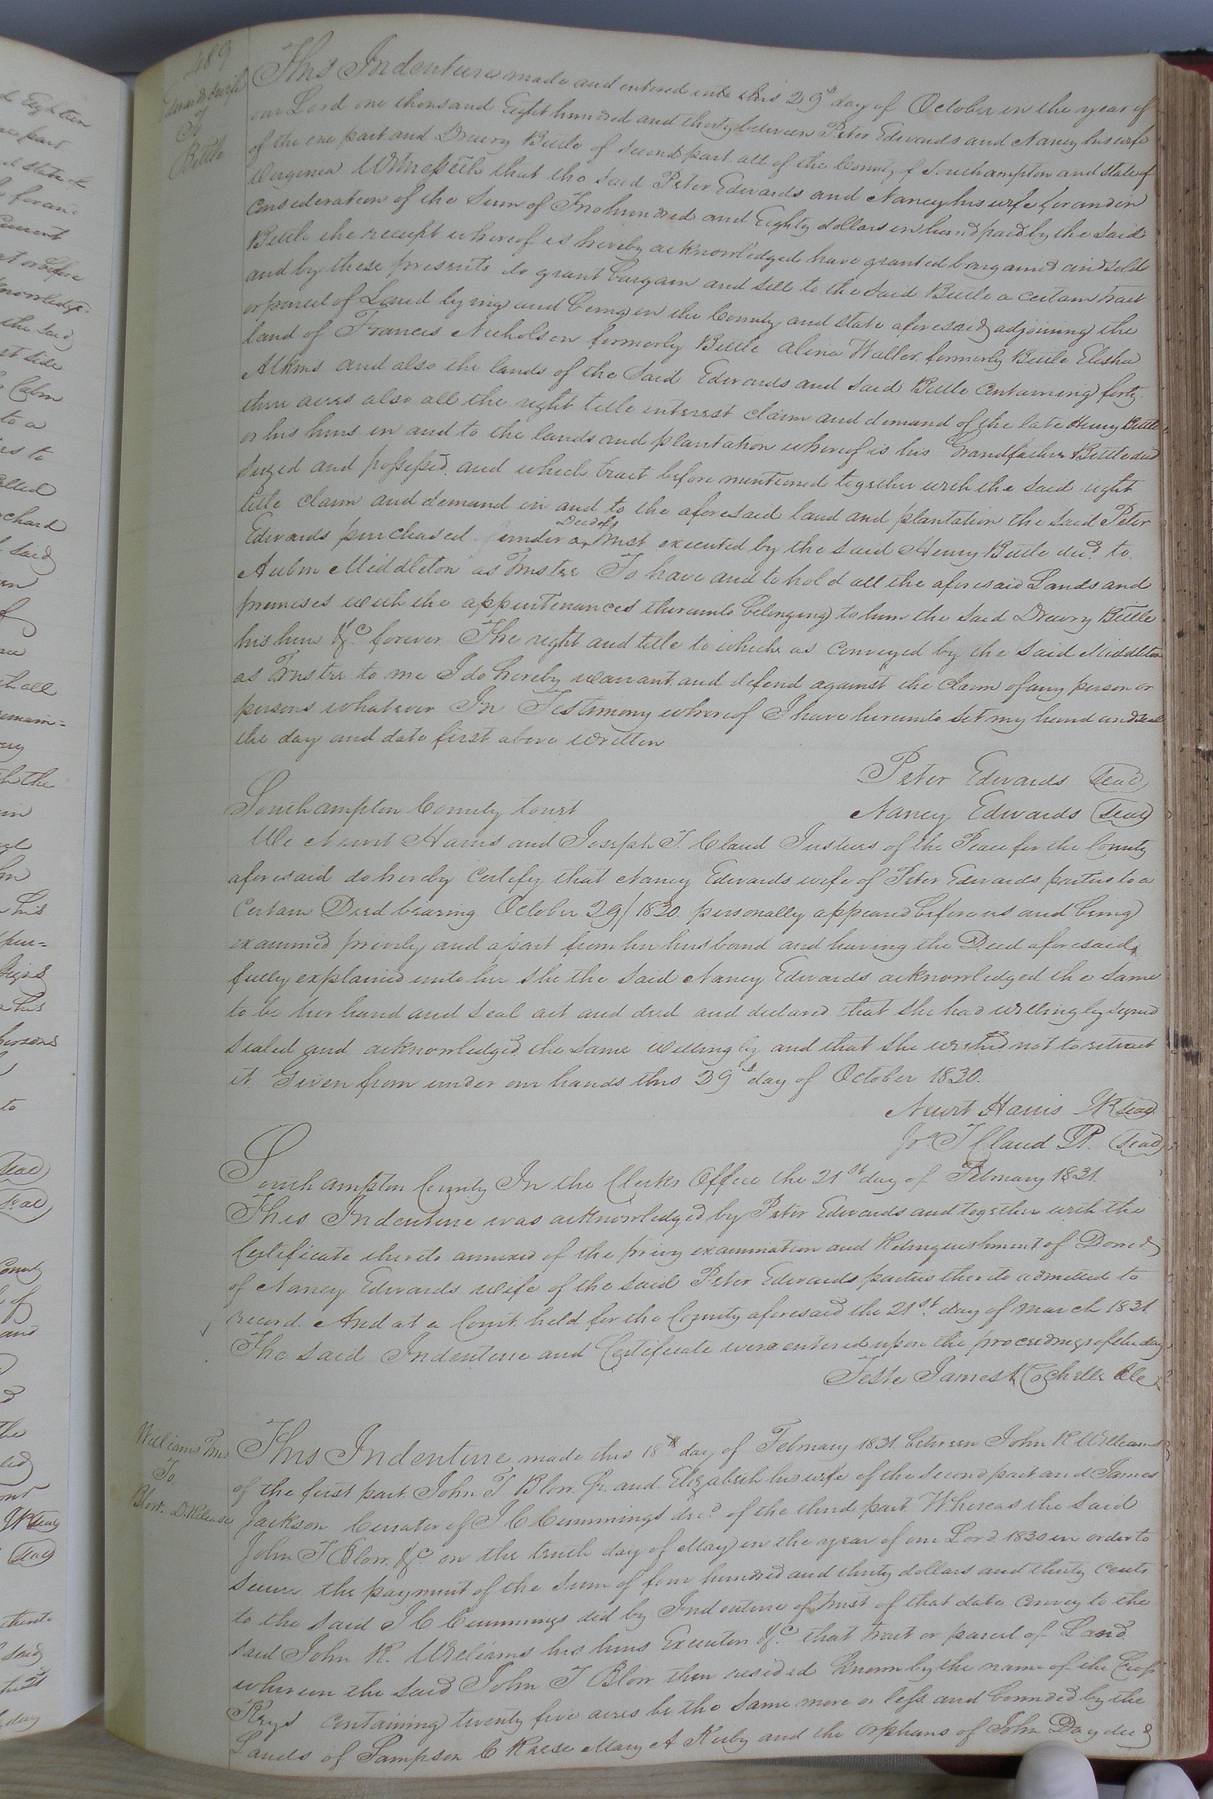 489
Edwards & wife
To
Bittle
This Indenture made and entered into this 29th day of October in the year of
our Lord one thousand Eight hundred and thirty between Peter Edwards and Nancy his wife
of the one part and Drewry Bittle of second part all of the County of Southampton and state of
Virginia Witnesseth that the said Peter Edwards and Nancy his wife for and in
Consideration of the Sum of Two hundred and Eighty dollars in hand paid by the said
Bittle the receipt whereof is hereby acknowledged have granted bargained and sold
and by these presents do grant bargain and sell to the said Bittle a certain tract
or parcel of Land lying and being in the County and state aforesaid adjoining the
land of Francis Nicholson formerly Bittle Alina Waller formerly Bittle Elisha
Atkins and also the lands of the Said Edwards and said Bittle Containing forty
three acres also all the right title interest claim and demand of the late Henry Bittle
or his heirs in and to the lands and plantation whereof is his Grandfather Bittle died
Seized and possessed, and which tract before mentioned together with the said right
title claim and demand in and to the aforesaid land and plantation the said Peter
Edwards purchased under a Deed of Trust executed by the said Henry Bittle decd to
Middleton as Trustee To have and to hold all the aforesaid Lands and
premises with the appurtenances thereunto belonging to him the said Drewry Bittle
his heirs &c forever The right and title to which as conveyed by the said Middleton
as Trustee to me I do hereby warrant and defend against the claim of any person or
persons whatever In Testimony whereof I have hereunto set my hand and seal
the day and date first above written
Peter Edwards (Seal)
Southampton County Court
Nancy Edwards (Seal)
We Newit Harris and Joseph T. Claud Justices of the Peace for the County
aforesaid do hereby Certify that Nancy Edwards wife of Peter Edwards parties to a
Certain Deed bearing October 29/1830 personally appeared before us and being
examined privily and apart from her husband and having the Deed aforesaid
fully explained unto her she the said Nancy Edwards acknowledged the same
to be her hand and seal act and deed and declared that she had willingly signed
sealed and acknowledged the same willingly and that she wished not to retract
it Given from under our hands this 29th day of October 1830.
Newit Harris JP (Seal)
Jos T Claud JP. (Seal)
Southampton County In the Clerks Office the 21st day of February 1831
This Indenture was acknowledged by Peter Edwards and together with the
Certificate thereto annexed of the privy examination and Relinquishment of Dower
of Nancy Edwards wife of the said Peter Edwards parties thereto admitted to
record. And at a Court held for the County aforesaid the 21st day of March 1831
The said Indenture and Certificate were entered upon the proceedings of the day
Teste James Rochelle Clk
Williams Trus
To
Blow. D. Release
This Indenture made this 18th day of February 1831 between John R Williams
of the first part John T Blow Jr and Elizabeth his wife of the second part and James
Jackson Curator of J C Cummings decd of the third part Whereas the said
John T Blow &c on the tenth day of May in the year of our Lord 1830 in order to
secure the payment of the sum of four hundred and thirty dollars and thirty cents
to the said J C Cummings did by Indenture of trust of that date convey to the
said John R. Williams his heirs Executors &c that tract or parcel of Land
whereon the said John T Blow then resided known by the name of the Cross
Keys containing twenty five acres be the same more or less and bounded by the
Lands of Sampson C Reese Mary A Kirby and the orphans of John Day decd